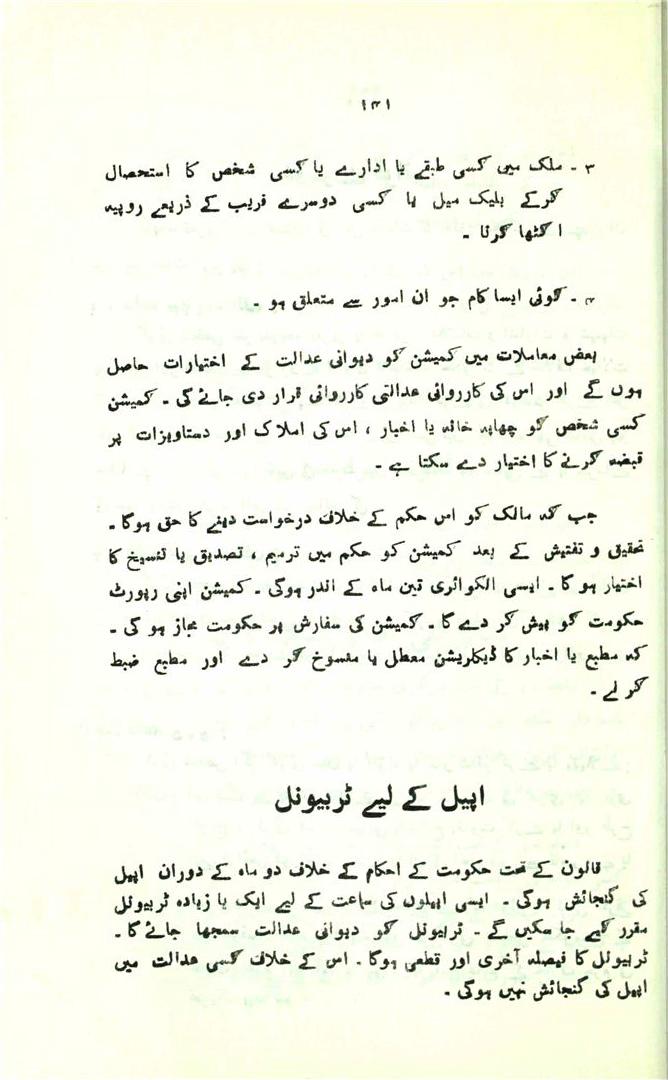 ۱۴۱
۳ - ملک میں کسی طبقے یا ادارے یا کسی شخص کا استحصال
کرکے بلیک میل یا کسی دوسرے فریب کے ذریعے روپیہ
اکٹھا کرنا -
۴ - کوئی ایسا کام جو ان امور سے متعلق ہو -
بعض معاملات میں کمیشن کو دیوانی عدالت کے اختیارات حاصل
ہوں گے اور اس کی کارروائی عدالتی کارروائی قرار دی جائے گی - کمیشن
کسی شخص کو چھاپہ خانہ یا اخبار ، اس کی املاک اور دستاویزات پر
قبضہ کرنے کا اختیار دے سکتا ہے -
جب کہ مالک کو اس حکم کے خلاف درخواست دینے کا حق ہوگا -
تحقیق و تفتیش کے بعد کمیشن کو حکم میں ترمیم ، تصدیق یا تنسیخ کا
اختیار ہو گا - ایسی انکوائری تین ماہ کے اندر ہوگی - کمیشن اپنی رپورٹ
حکومت کو پیش کر دے گا - کمیشن کی سفارش پر حکومت مجاز ہو گی -
کہ مطبع یا اخبار کا ڈیکلریشن معطل یا منسوخ کر دے اور مطبع ضبط
کر لے -
اپیل کے لیے ٹربیونل
قانون کے تحت حکومت کے احکام کے خلاف دو ماہ کے دوران اپیل
کی گنجائش ہوگی - ایسی اپیلوں کی سماعت کے لیے ایک یا زیادہ ٹربیونل
مقرر کیے جا سکیں گے - ٹربیونل کو دیوانی عدالت سمجھا جائے گا -
ٹربیونل کا فیصلہ آخری اور قطعی ہوگا - اس کے خلاف کسی عدالت میں
اپیل کی گنجائش نہیں ہوگی -